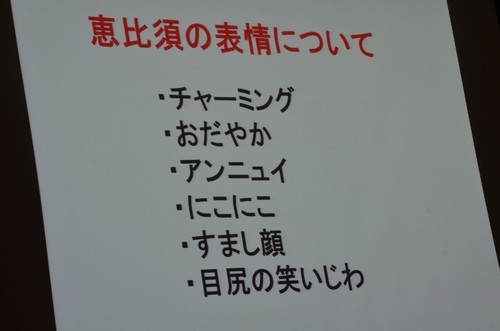 恵比須の表情について
・チャーミング
・おだやか
・アンニュイ
・にこにこ
・すまし顔
・目尻の笑いじわ